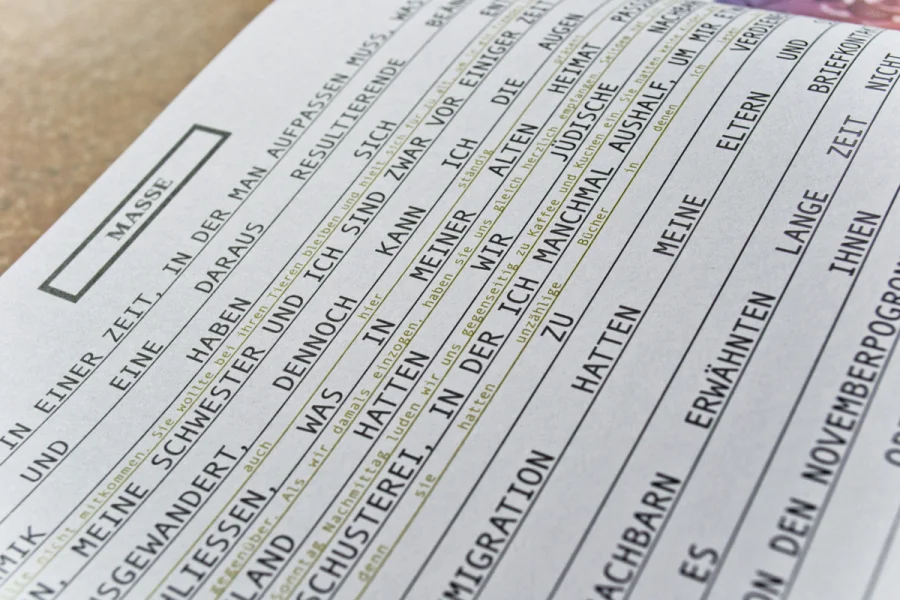 MASSE
IN EINER ZEIT, IN DER MAN AUFPASSEN MUSS, WAS
UND EINE DARAUS RESULTIERENDE
MIK HABEN SICH
nicht mitkommen. Sie wollte bei ihren Tieren bleiben und hielt sich für zu alt, um
N, MEINE SCHWESTER UND ICH SIND ZWAR VOR EINIGER ZEIT
SGEWANDERT, DENNOCH KANN ICH DIE AUGEN
auch hier ständig
HLIESSEN, WAS IN MEINER ALTEN HEIMAT PASS
gegenüber. Als wir damals einzogen, haben sie uns gleich herzlich empfangen.
LAND HATTEN WIR JÜDISCHE NACHBAR
Sonntag Nachmittag luden wir uns gegenseitig zu Kaffee und Kuchen ein. Sie hatten
SCHUSTEREI, IN DER ICH MANCHMAL AUSHALF, UM MIR
denn sie hatten unzählige Bücher in denen ich
ZU VERDIEN
MIGRATION HATTEN MEINE ELTERN UND
BRIEFKONTA
ACHBARN ERWÄHNTEN LANGE ZEIT NICHT
ES IHNEN
ON DEN NOVEMBERPOGRO